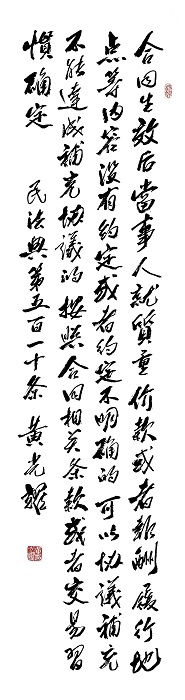 合同生效后當事人就質量价款或者報酬履行地
点等内容没有约定或者约定不明確的可以协議補充
不能達成補充协議的按照合同相关条款或者交易習
慣确定 民法典第五百一十条 黄光耀